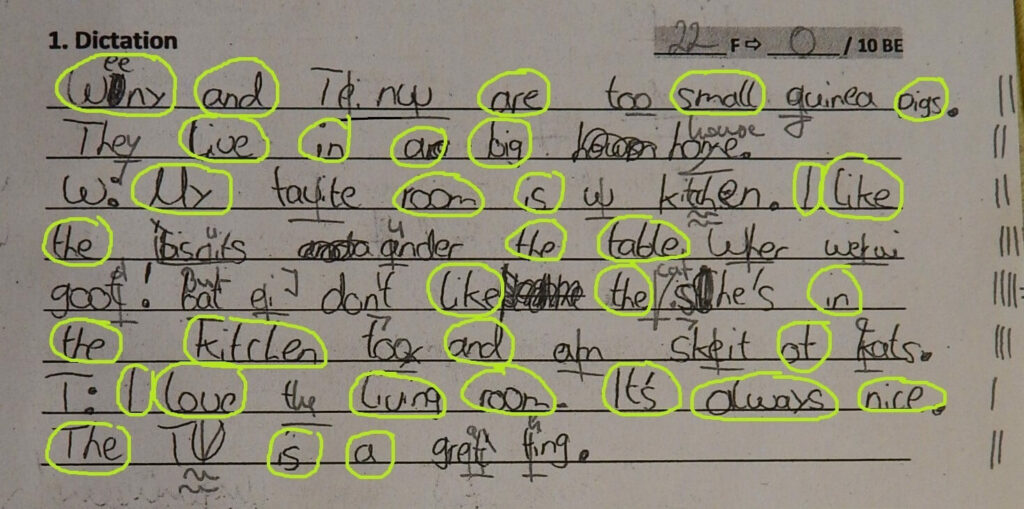 1. Dictation
22 F⇨ 0 / 10 BE
Weeny and are too small guinea pigs.
They live in a big house home.
W: My favite room is kitchen. I like
the bisgits ander the table. wer
goot! But don't like the cat she's in
the kitchen too and am skeit of kats.
T: I love the living room. It's always nice.
The TV is a great fing.